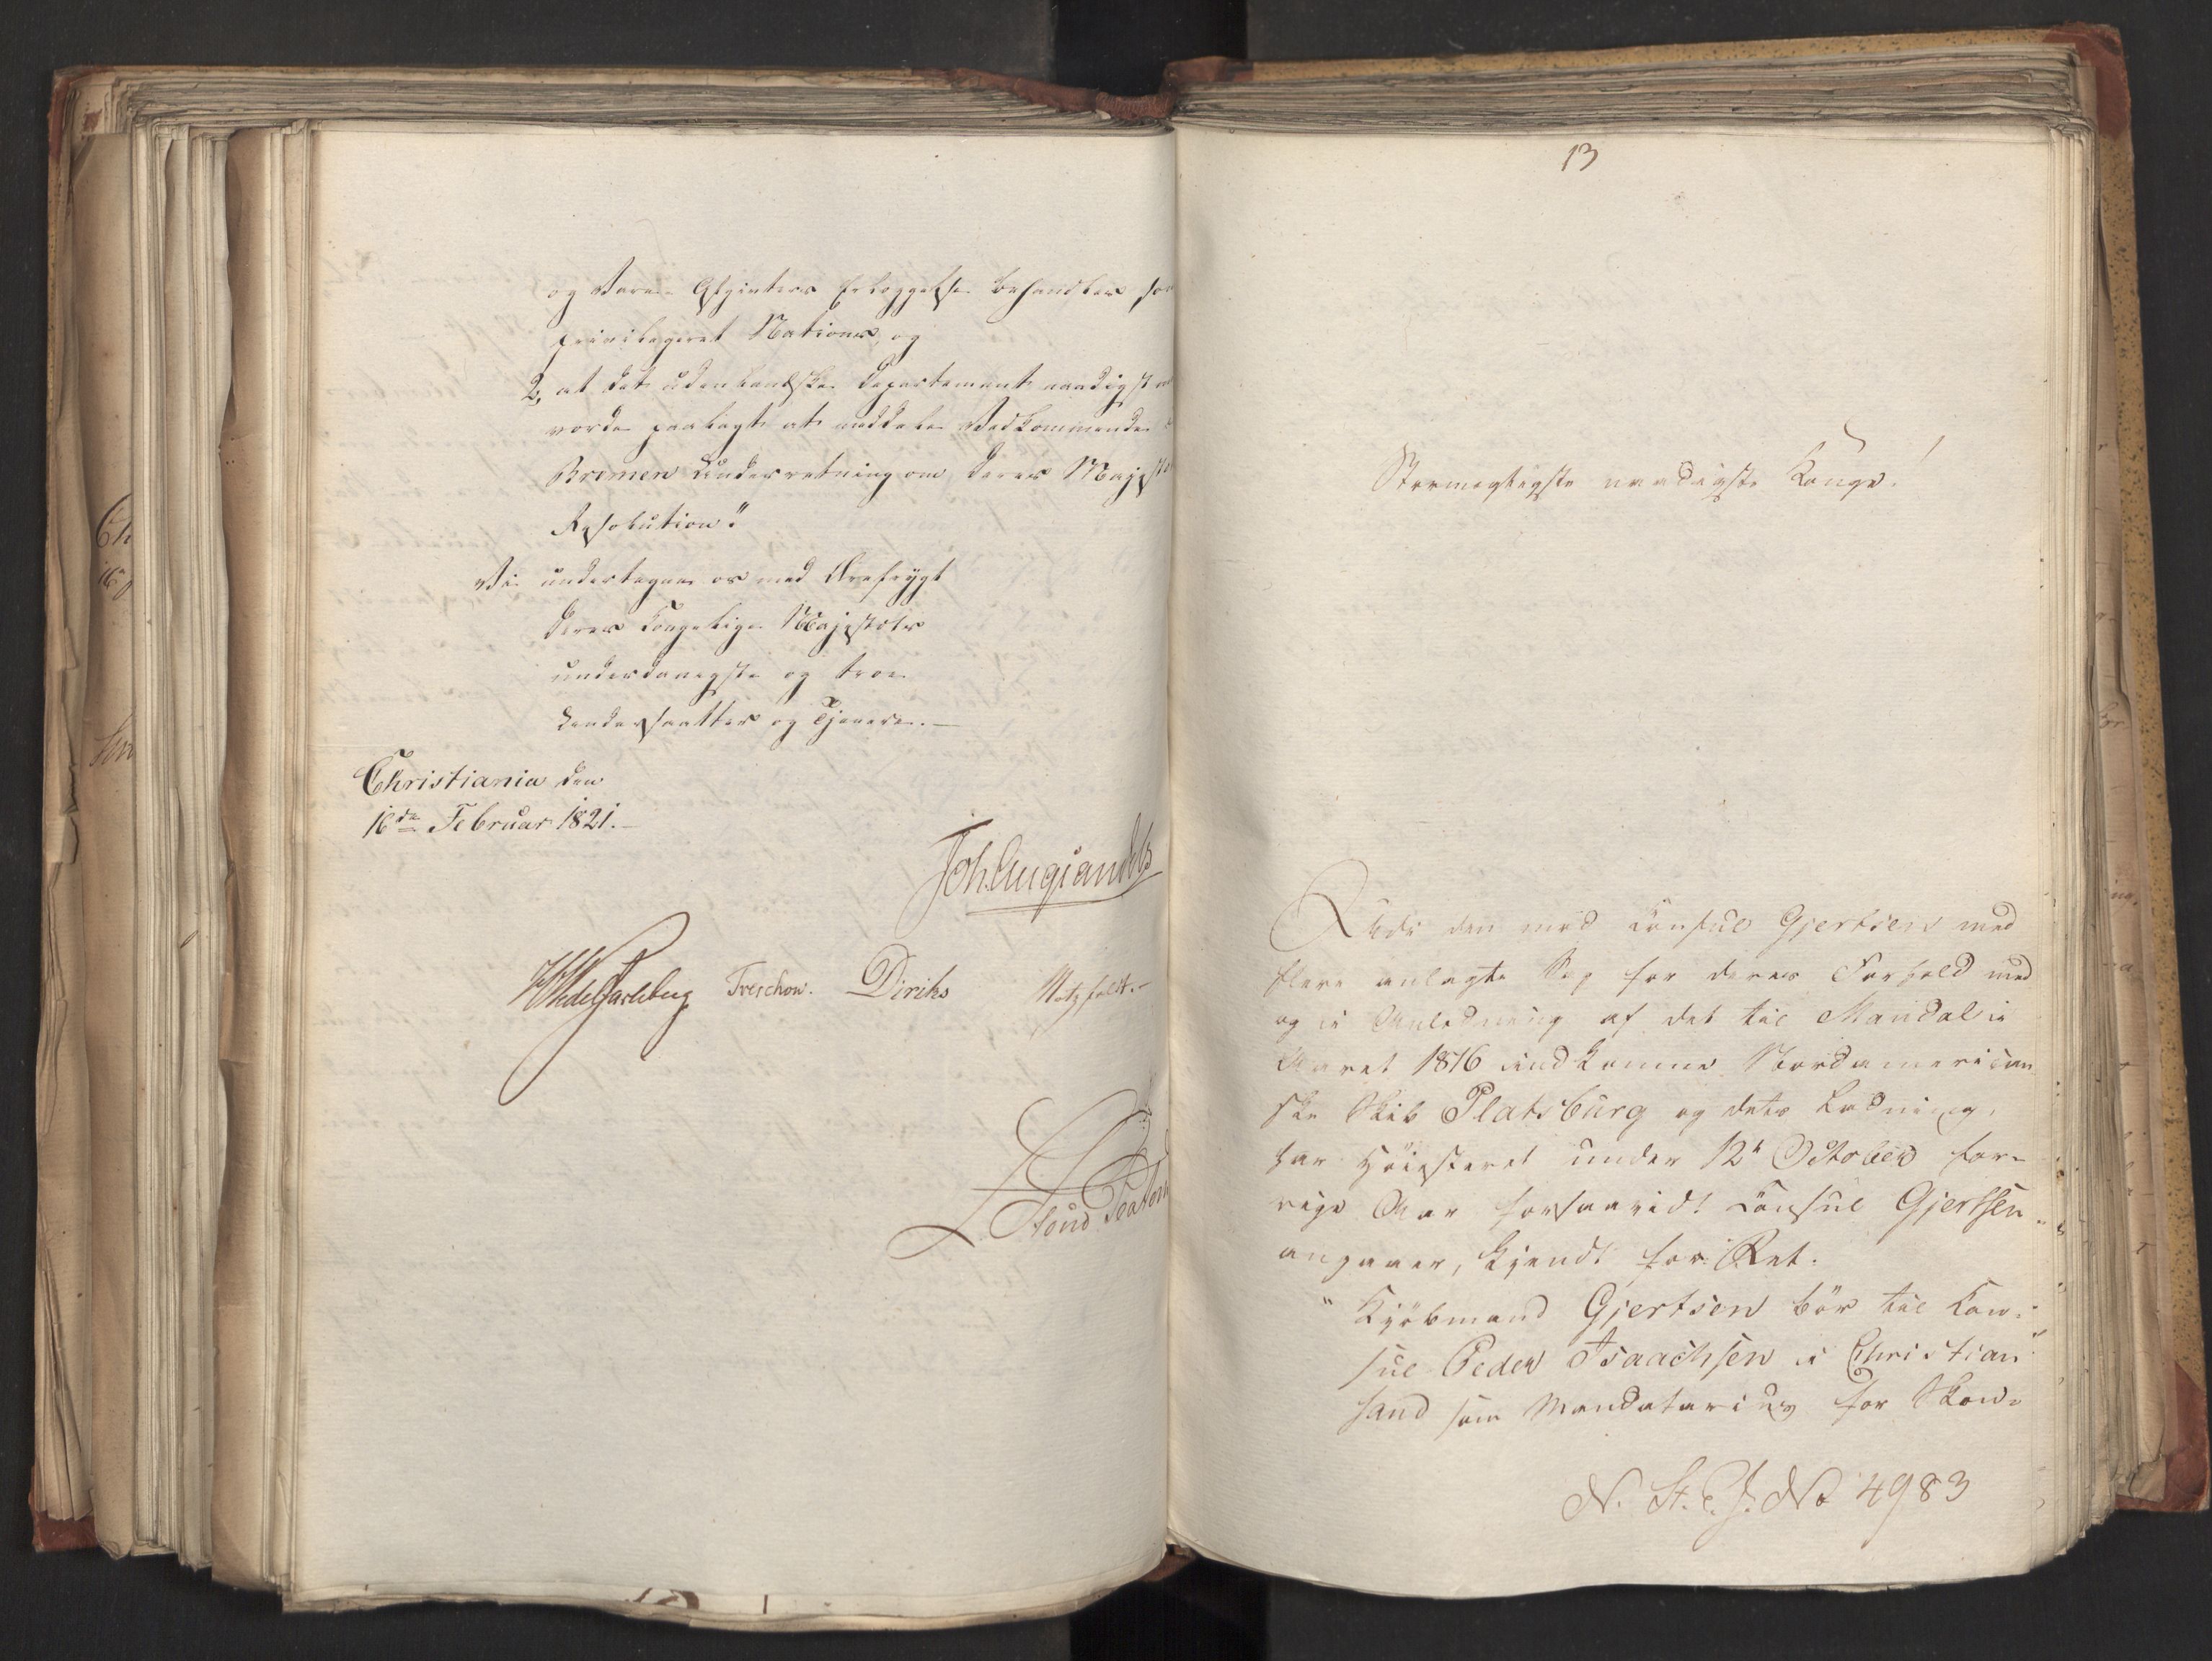 og Vare- Afgivters Erlæggelse behandles som
privilegeret Nation, og
2, at det udenlandske Departement naadigst
vorde paalagt at meddele Vedkommende i
Bremen Underretning om Deres Majestæts
Resolution."
Vi undertegne os med Ærefrygt
Deres Kongelige Majestæts
underdanigste og troe
Undersaatter og Tjenere.-
Christiania den
16de Februar 1821.-
Joh. Aug. Sandels
HWedelJarlsberg Treschow. Diriks Motzfeldt.-
13
Stormægtigste naadigste Konge!
Udi den mod Consul Gjertsen med
flere anlagte Sag for deres Forhold med
og i Anledning af det til Mandal i
Aaret 1816 indkomne Nordamerican
ske Skib Platsburg og dets Ladning,
har Höiesteret under 12t October for-
rige Aar forsaavidt Consul Gjertsen
angaaer, kjendt for Ret.
"Kjöbmand Gjertsen bör til Con-
sul Peder Isaachsen i Christian
sand som Mandatarius for Skow-
N. St. S. J. No 4983